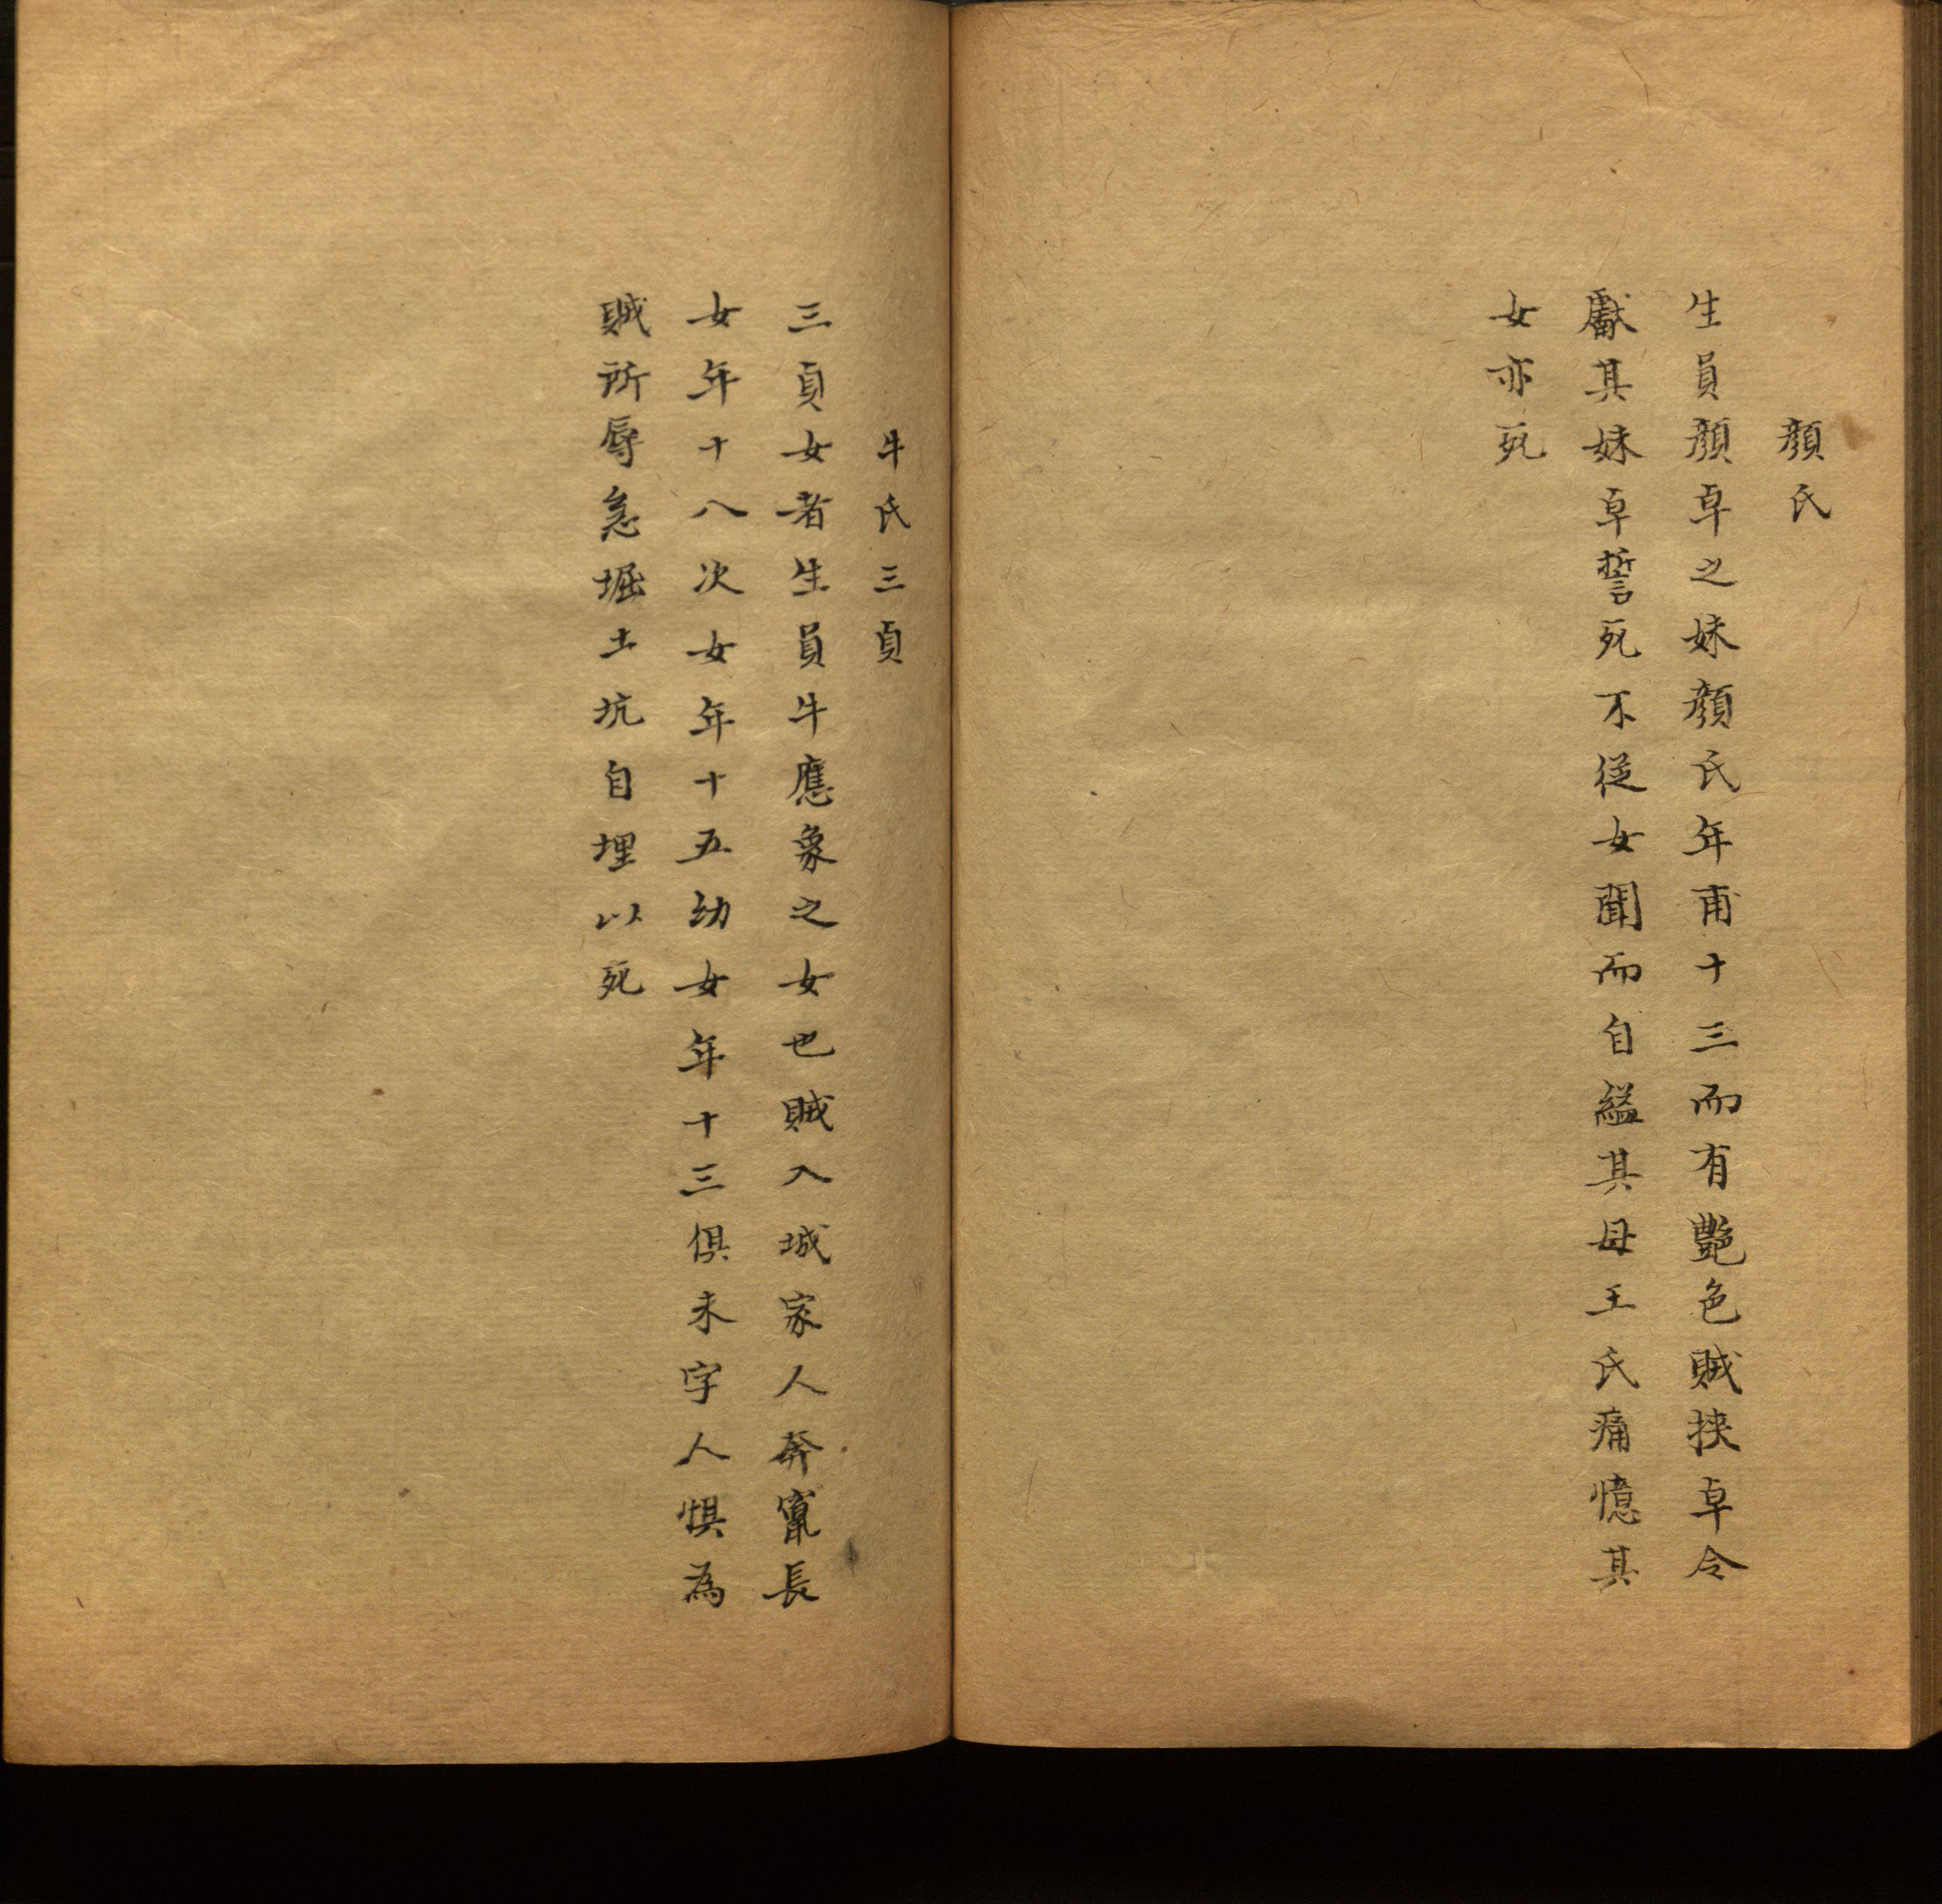 顏氏
生員顏卓之妹顏氏年甫十三而有艷色賊挾卓令
獻其妹卓誓死不從女聞而自縊其母王氏痛憶其
女亦死
牛氏三貞
三貞女者生員牛應象之女也賊入城家人奔竄長
女年十八次女年十五幼女年十三俱未字人惧為
賊所辱急堀土坑自埋以死